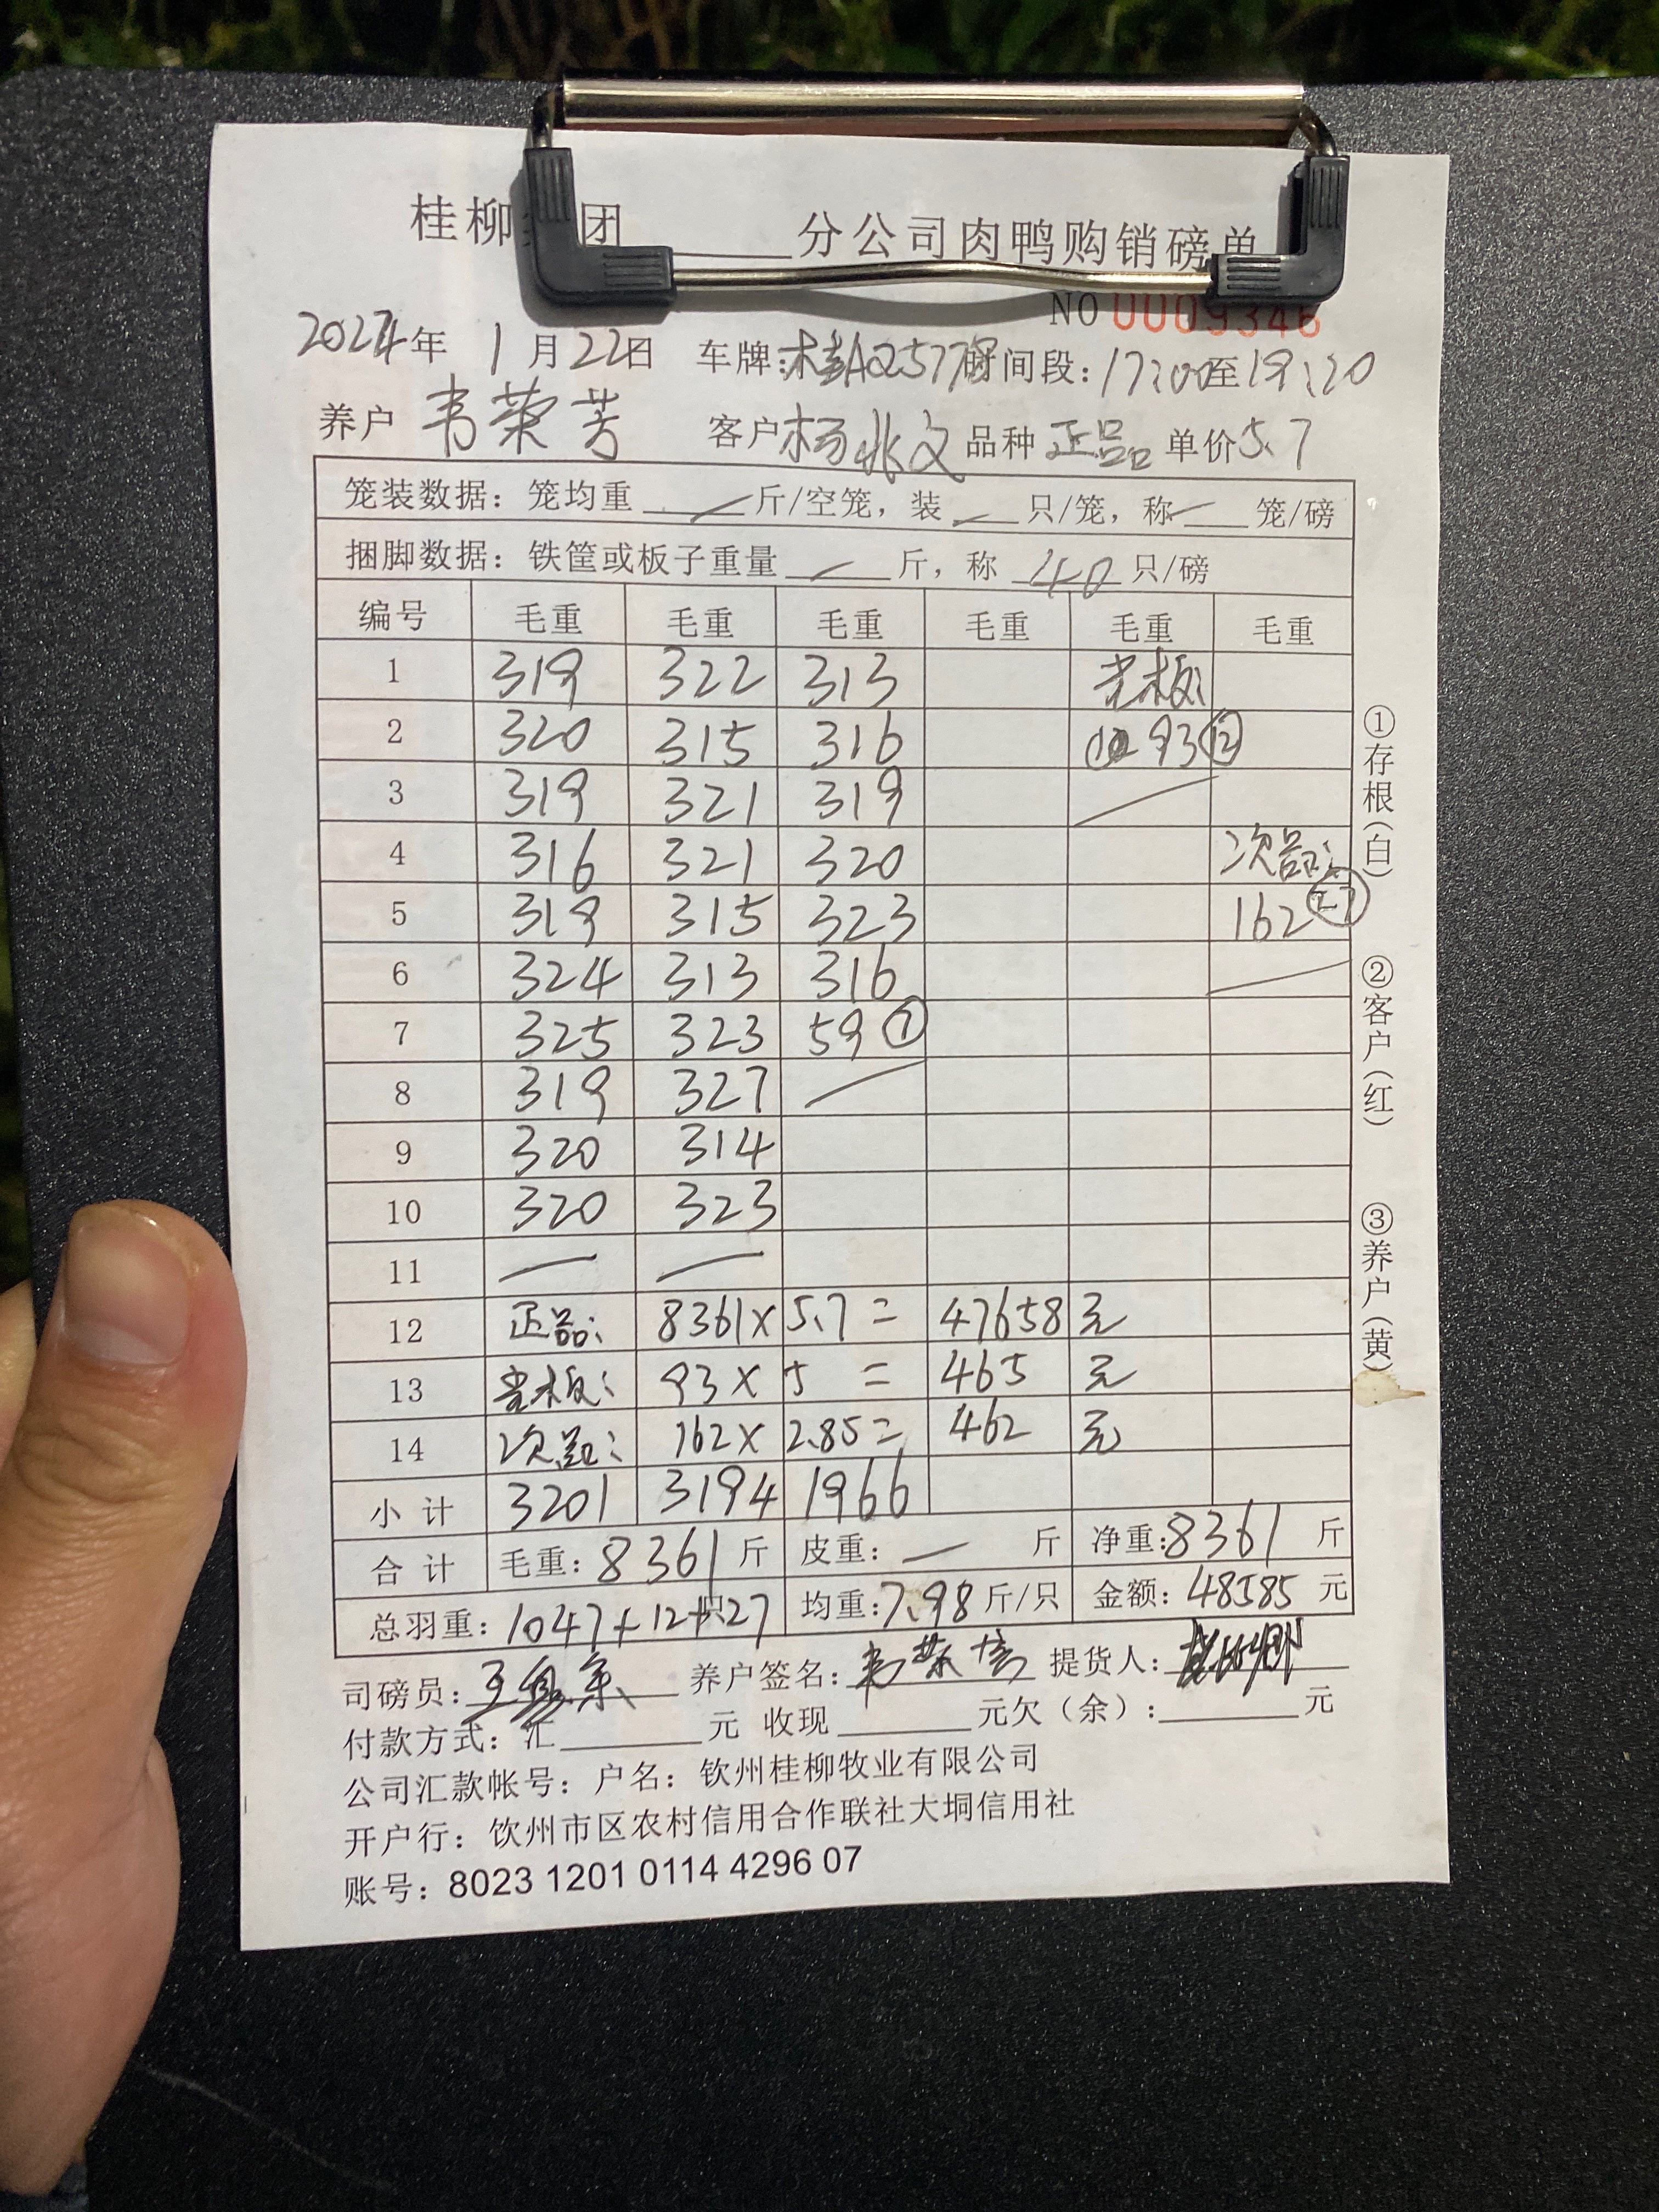 桂柳集团______分公司肉鸭购销磅单
NO 0009346
2024年 1月22日 车牌:桂A Q577 时间段:17:00至19:20
养户 韦荣芳 客户 杨兆文 品种 正品 单价5.7
笼装数据: 笼均重 — 斤/空笼, 装 — 只/笼, 称 — 笼/磅
捆脚数据: 铁筐或板子重量 — 斤, 称 40 只/磅
编号 毛重 毛重 毛重 毛重 毛重 毛重
1 319 322 313 光板:
2 320 315 316 93 ⑫
3 319 321 319 —
4 316 321 320 次品:
5 319 315 323 162 ㉗
6 324 313 316 —
7 325 323 59 ⑦
8 319 327 —
9 320 314
10 320 323
11 — —
12 正品: 8361 × 5.7 = 47658 元
13 光板: 93 × 5 = 465 元
14 次品: 162 × 2.85 = 462 元
小计 3201 3194 1966
合计 毛重: 8361 斤 皮重: — 斤 净重:8361 斤
总羽重: 1047+12+27 只 均重:7.98 斤/只 金额: 48585 元
司磅员: 养户签名: 提货人:
付款方式: 汇______元 收现______元欠(余):______元
公司汇款帐号: 户名: 钦州桂柳牧业有限公司
开户行: 钦州市区农村信用合作联社大垌信用社
账号: 8023 1201 0114 4296 07
①存根(白) ②客户(红) ③养户(黄)